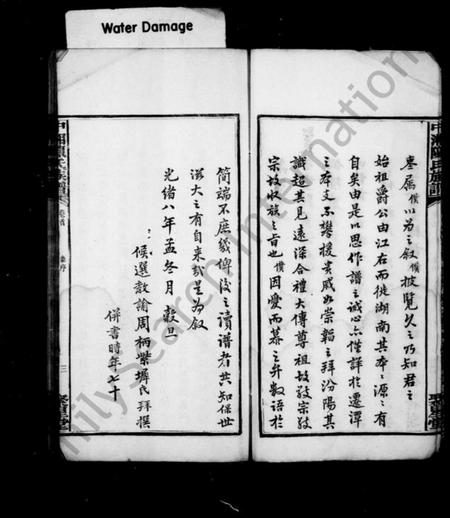 Water Damage
棗屬僕以為之叙僕披覽久之乃知君之
始祖爵公由江右而徙湖南其本之源之有
自矣由是以思作譜之誠心亦僅詳於遷潭
之本支不攀援貴戚如崇韜之拜汾陽其
識超其見遠深合禮大傳尊祖故敬宗敬
宗故收族之旨也僕因愛而慕之弁數語於
簡端不庶幾俾後之讀譜者共知保世
滋大之有自來哉是為叙
光緒八年孟冬月 穀旦
候選教諭周柄 氏拜撰
併書時年七十
族譜
卷首
三
FamilySearch International